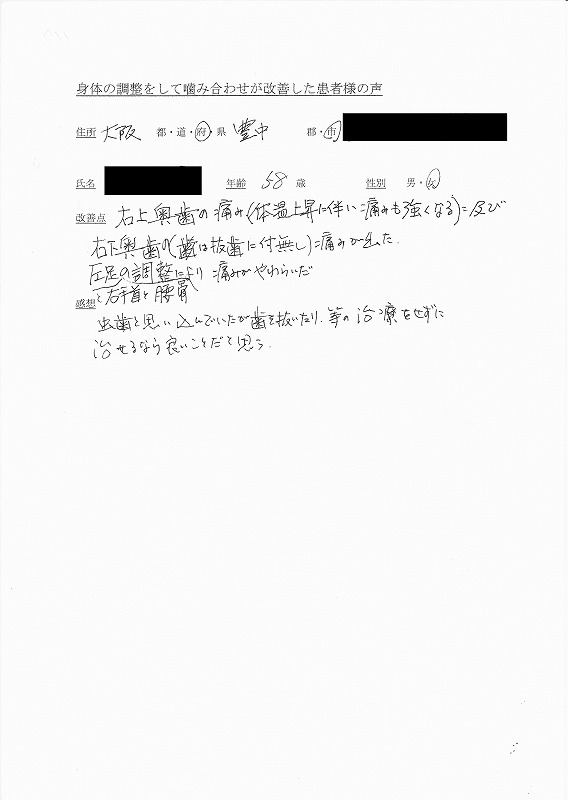 身体の調整をして噛み合わせが改善した患者様の声
住所 大阪 都・道・府・県 豊中 郡・市
氏名 年齢 58 歳 性別 男・女
改善点 右上奥歯の痛み(体温上昇に伴い痛みも強くなる)に及び
右下奥歯の(歯は抜歯に付無し)に痛みが出た.
左足の調整により痛みがやわらいだ
と右手首と腰骨
感想
虫歯と思い込んでいたが歯を抜いたり、等の治療をせずに
治せるなら良いことだと思う.